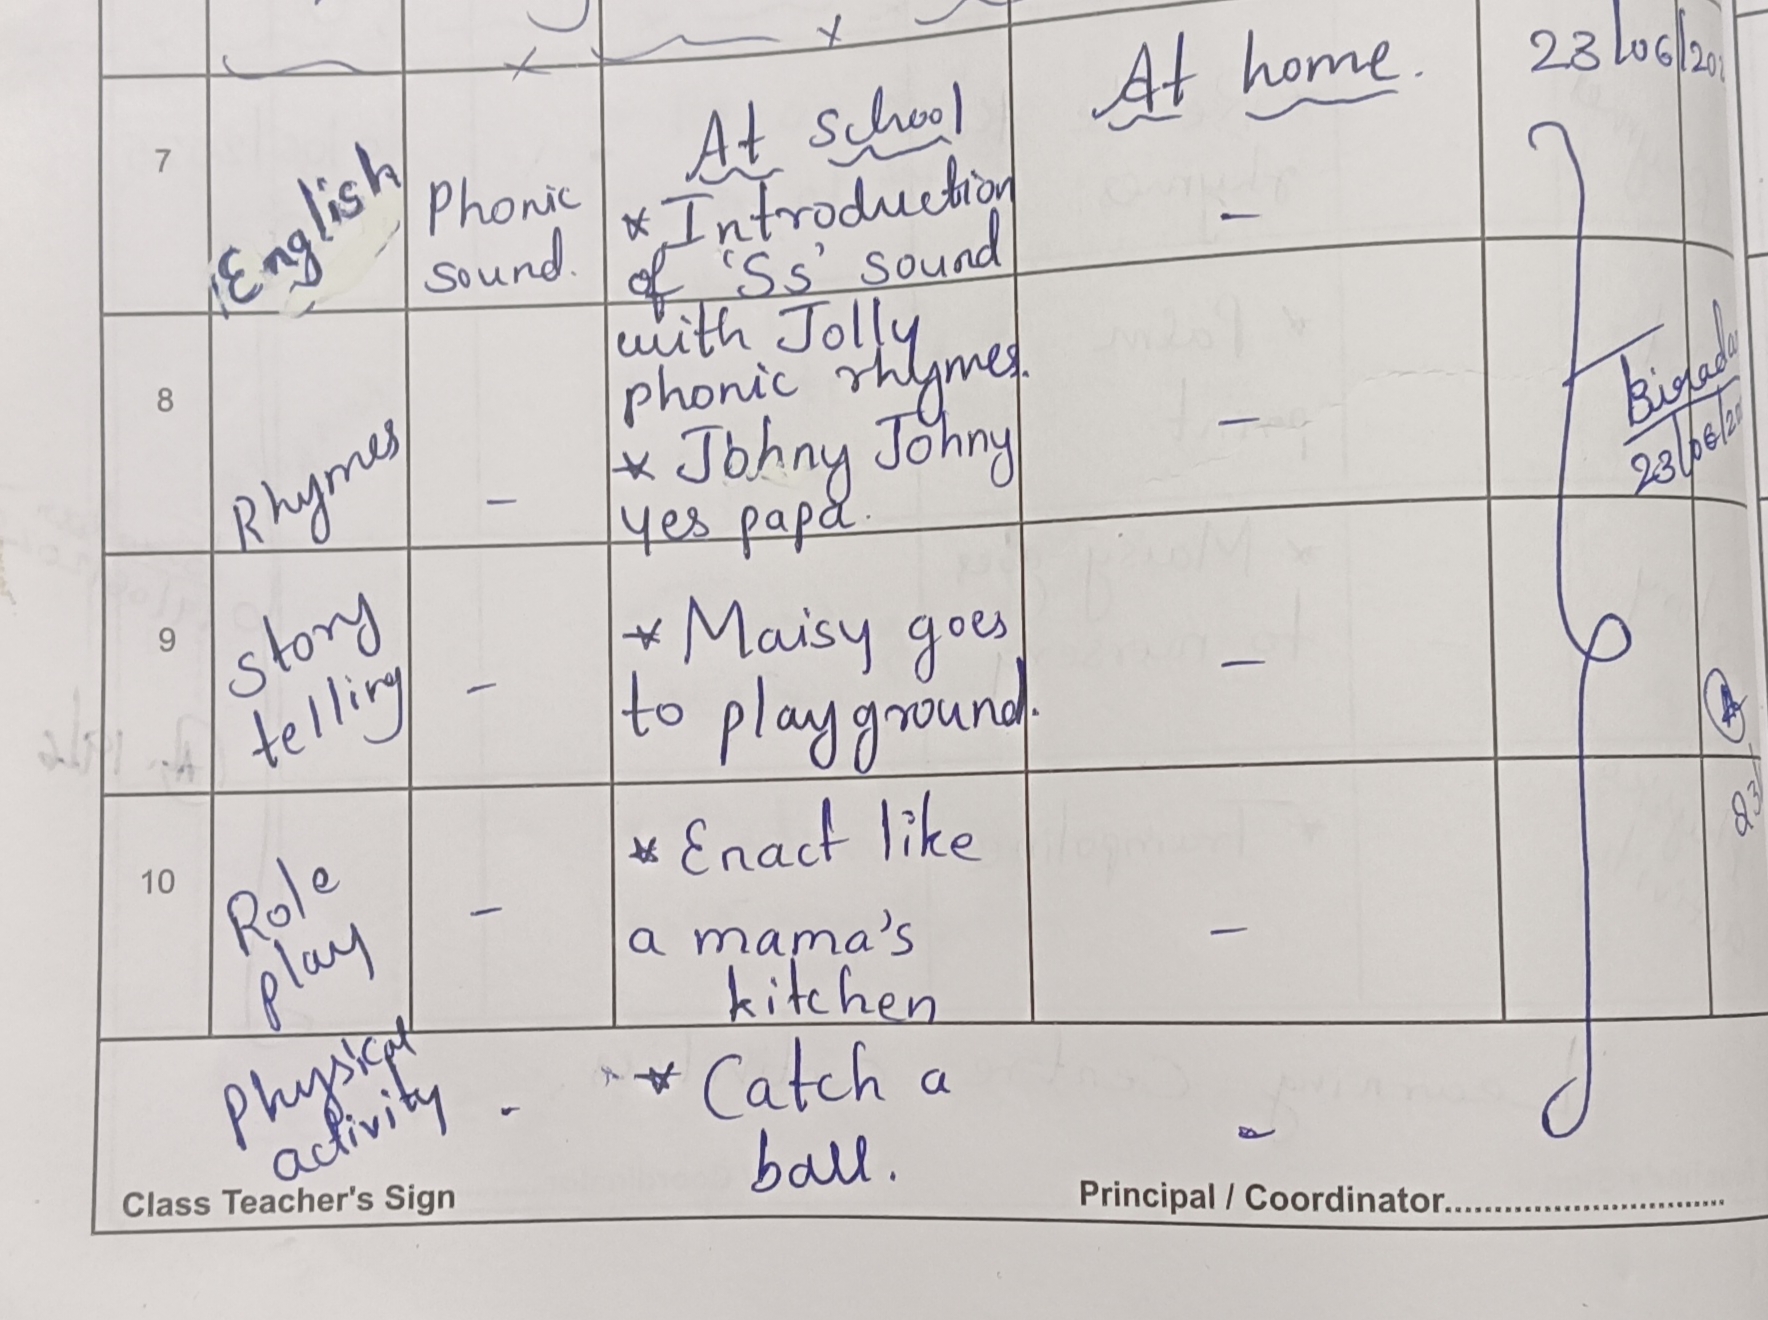 At school
At home.
23/06/202
7
English
Phonic
sound.
* Introduction
of 'Ss' sound
with Jolly
phonic rhymes.
-
8
Rhymes
-
* Johny Johny
yes papa.
-
23/06/20
9
Story
telling
-
* Maisy goes
to play ground.
-
10
Role
play
-
* Enact like
a mama's
kitchen
-
23/
Physical
activity
-
* Catch a
ball.
-
Class Teacher's Sign
Principal / Coordinator..............................